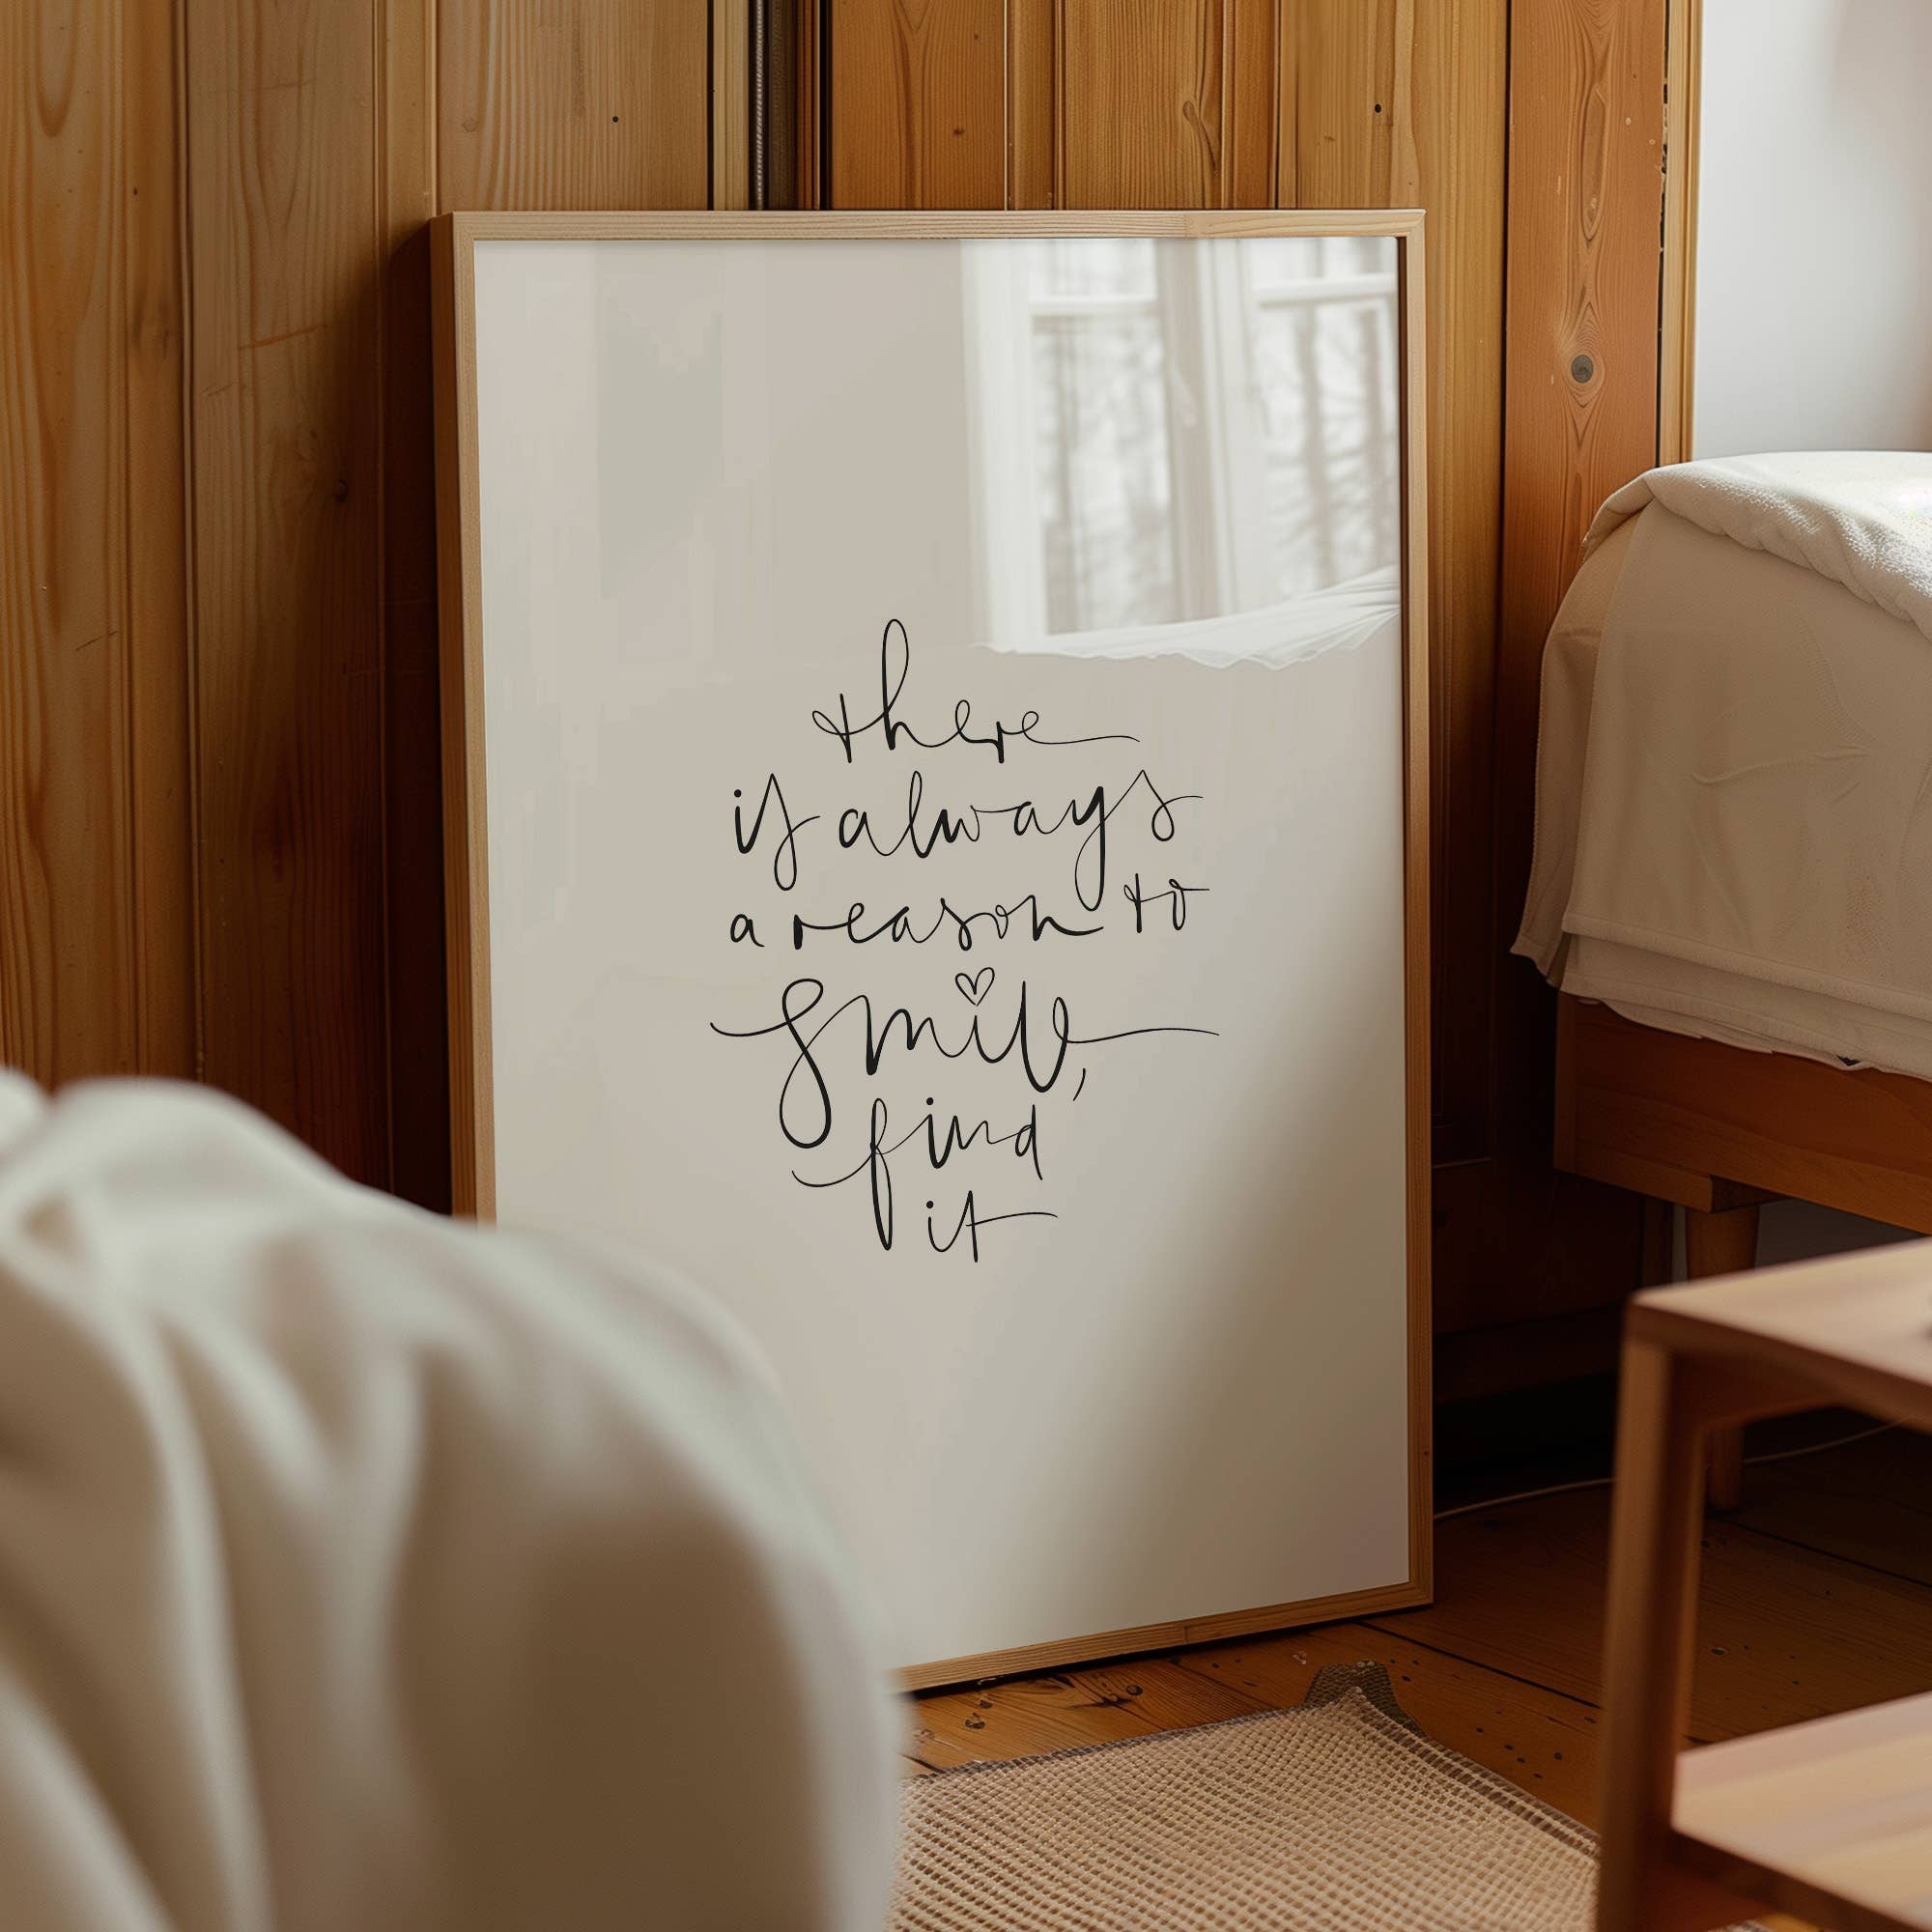 there
is always
a reason to
smile,
find
it